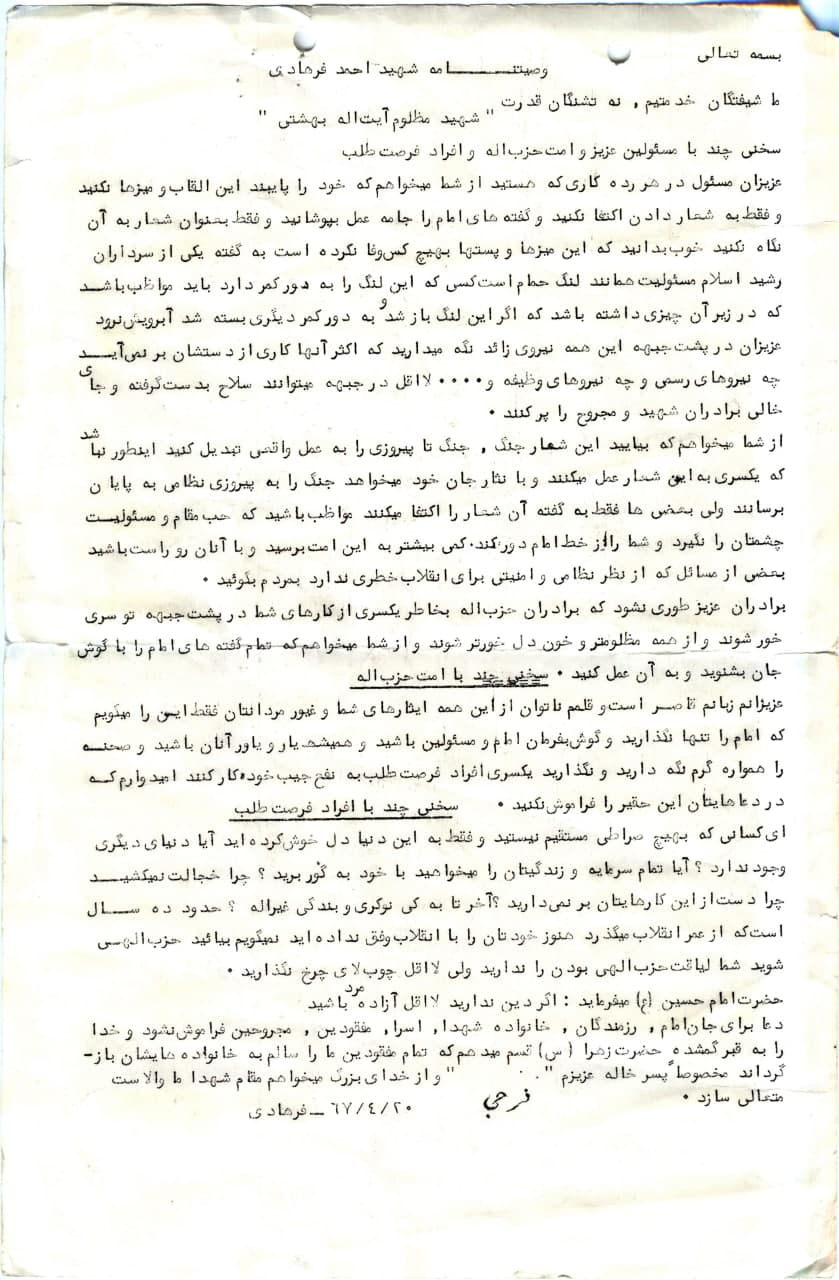 بسمه تعالی
وصیتنـــــــامه شهید احمد فرهادی
ما شیفتگان خدمتیم , نه تشنگان قدرت
" شهید مظلوم آیت‌اله بهشتی "
سخنی چند با مسئولین عزیز و امت حزب‌اله و افراد فرصت طلب
عزیزان مسئول در هر رده کاری که هستید از شما میخواهم که خود را پایبند این القاب و میزها نکنید
و فقط به شعار دادن اکتفا نکنید و گفته های امام را جامه عمل بپوشانید و فقط بعنوان شعار به آن
نگاه نکنید خوب بدانید که این میزها و پستها بهیچ کس وفا نکرده است به گفته یکی از سرداران
رشید اسلام مسئولیت همانند لنگ حمام است کسی که این لنگ را به دور کمر دارد باید مواظب باشــد
که در زیر آن چیزی داشته باشد که اگر این لنگ باز شد و به دور کمر دیگری بسته شد آبرویش نرود
عزیزان در پشت جبهه این همه نیروی زائد نگه میدارید که اکثر آنها کاری از دستشان بر نمی‌آیــد
چه نیروهای رسمی و چه نیروهای وظیفه و ۰۰۰۰ لااقل در جبهه میتوانند سلاح بدست گرفته و جای
خالی برادران شهید و مجروح را پر کنند ۰
از شما میخواهم که بیایید این شعار جنگ , جنگ تا پیروزی را به عمل واقعی تبدیل کنید اینطور نباشد
که یکسری به این شعار عمل میکنند و با نثار جان خود میخواهد جنگ را به پیروزی نظامی به پایان
برسانند ولی بعضی ها فقط به گفته آن شعار را اکتفا میکنند مواظب باشید که حب مقام و مسئولیت
چشمتان را نگیرد و شما را از خط امام دور کند۰ کمی بیشتر به این امت برسید و با آنان رو راست باشید
بعضی از مسائل که از نظر نظامی و امنیتی برای انقلاب خطری ندارد بمردم بگوئید ۰
برادران عزیز طوری نشود که برادران حزب‌اله بخاطر یکسری از کارهای شما در پشت جبهه تو سری
خور شوند و از همه مظلومتر و خون دل خورتر شوند و از شما میخواهم که تمام گفته های امام را با گوش
جان بشنوید و به آن عمل کنید ۰ سخنی چند با امت حزب‌اله
عزیزانم زبانم قاصر است و قلمم ناتوان از این همه ایثارهای شما و غیور مردانتان فقط این را میگویم
که امام را تنها نگذارید و گوش بفرمان امام و مسئولین باشید و همیشه یار و یاور آنان باشید و صحنــه
را همواره گرم نگه دارید و نگذارید یکسری افراد فرصت طلب به نفع جیب خود کار کنند امیدوارم کــه
در دعاهایتان این حقیر را فراموش نکنید ۰ سخنی چند با افراد فرصت طلب
ای کسانی که بهیچ صراطی مستقیم نیستید و فقط به این دنیا دل خوش کرده اید آیا دنیای دیگری
وجود ندارد ؟ آیا تمام سرمایه و زندگیتان را میخواهید با خود به گور برید ؟ چرا خجالت نمیکشیــد
چرا دست از این کارهایتان بر نمی‌دارید ؟ آخر تا به کی نوکری و بندگی غیراله ؟ حدود ده ســـال
است که از عمر انقلاب میگذرد هنوز خودتان را با انقلاب وفق نداده اید نمیگویم بیائید حزب‌الهــی
شوید شما لیاقت حزب‌الهی بودن را ندارید ولی لااقل چوب لای چرخ نگذارید ۰
حضرت امام حسین (ع) میفرماید : اگر دین ندارید لااقل آزاده مرد باشید
دعا برای جان امام , رزمندگان , خانواده شهدا, اسرا, مفقودین , مجروحین فراموش نشود و خدا
را به قبر گمشده حضرت زهرا (س) قسم میدهم که تمام مفقودین ما را سالم به خانواده هایشان باز-
گرداند مخصوصاً پسر خاله عزیزم " " و از خدای بزرگ میخواهم مقام شهدا ما والاست
متعالی سازد ۰
فرجی
۶۷/۴/۲۰ ــ فرهادی